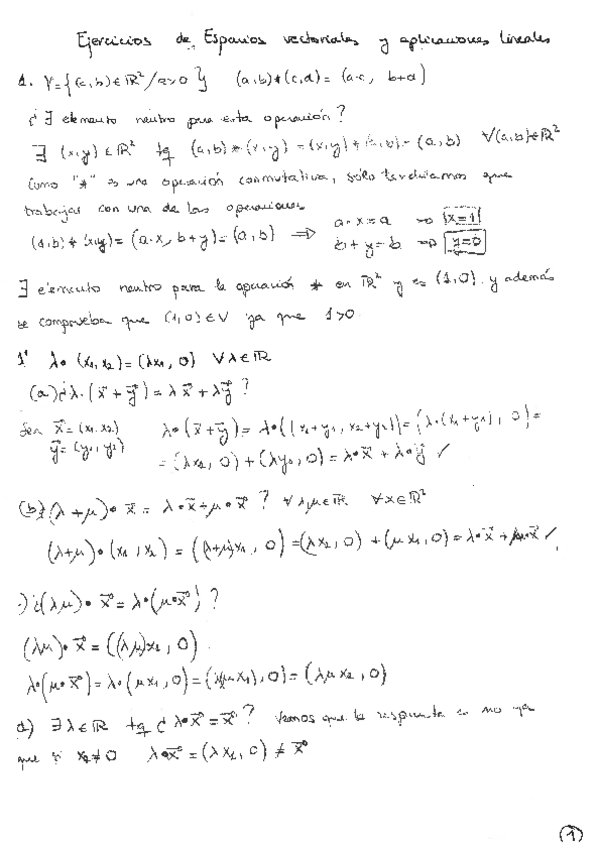 Ejercicios de Espacios vectoriales y aplicaciones lineales
1. V={(a,b)∈ℝ²/a>0} (a,b)*(c,d)=(a·c, b+d)
¿∃ elemento neutro para esta operación?
∃ (x,y)∈ℝ² tq (a,b)*(x,y)=(x,y)*(a,b)=(a,b) ∀(a,b)∈ℝ²
Como "*" es una operación conmutativa, sólo tendríamos que
trabajar con una de las operaciones
(a,b)*(x,y)=(a·x, b+y)=(a,b) ⇒ a·x=a → x=1
b+y=b → y=0
∃ elemento neutro para la operación * en ℝ² y es (1,0) y además
se comprueba que (1,0)∈V ya que 1>0.
1' λ•(x₁,x₂)=(λx₁,0) ∀λ∈ℝ
(a)¿λ·(x⃗+y⃗)=λx⃗+λy⃗?
Sea x⃗=(x₁,x₂) λ•(x⃗+y⃗)=λ•((x₁+y₁, x₂+y₂))=(λ·(x₁+y₁), 0)=
y⃗=(y₁,y₂) =(λx₁,0)+(λy₁,0)=λ•x⃗+λ•y⃗ ✓
(b)¿(λ+μ)•x⃗=λ•x⃗+μ•x⃗? ∀λ,μ∈ℝ ∀x∈ℝ²
(λ+μ)•(x₁,x₂)=((λ+μ)x₁,0)=(λx₁,0)+(μx₁,0)=λ•x⃗+μ•x⃗ ✓
) ¿(λμ)•x⃗=λ•(μ•x⃗)?
(λμ)•x⃗=((λμ)x₁,0)
λ•(μ•x⃗)=λ•(μx₁,0)=(λ(μx₁),0)=(λμx₁,0)
d) ∃λ∈ℝ tq ¿λ•x⃗=x⃗? Vemos que la respuesta es no ya
que si x₂≠0 λ•x⃗=(λx₁,0)≠x⃗
1